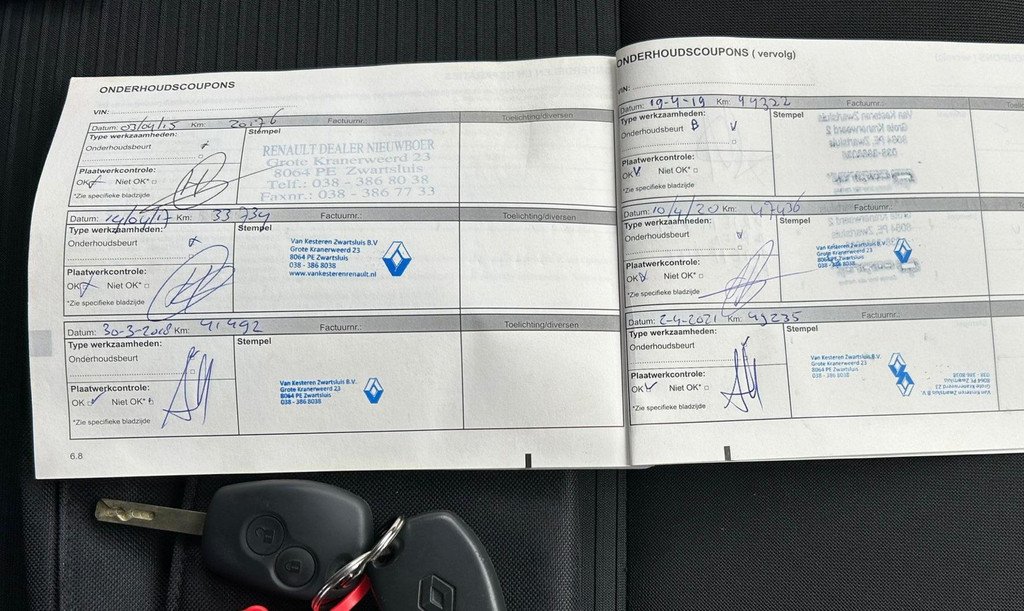 ONDERHOUDSCOUPONS
VIN:
Datum: 03/04/15 Km: 20176 Factuurnr.: Toelichting/diversen
Type werkzaamheden: Stempel
Onderhoudsbeurt
Plaatwerkcontrole:
OK Niet OK*
*Zie specifieke bladzijde
RENAULT DEALER NIEUWBOER
Grote Kranerweerd 23
8064 PE Zwartsluis
Telf.: 038 - 386 80 38
Faxnr.: 038 - 386 77 33
Datum: 14/04/17 Km: 33734 Factuurnr.: Toelichting/diversen
Type werkzaamheden: Stempel
Onderhoudsbeurt
Plaatwerkcontrole:
OK Niet OK*
*Zie specifieke bladzijde
Van Kesteren Zwartsluis B.V
Grote Kranerweerd 23
8064 PE Zwartsluis
038 - 386 8038
www.vankesterenrenault.nl
Datum: 30-3-2018 Km: 41492 Factuurnr.: Toelichting/diversen
Type werkzaamheden: Stempel
Onderhoudsbeurt
Plaatwerkcontrole:
OK Niet OK*
*Zie specifieke bladzijde
Van Kesteren Zwartsluis B.V.
Grote Kranerweerd 23
8064 PE Zwartsluis
038 - 386 8038
6.8
ONDERHOUDSCOUPONS ( vervolg)
VIN:
Datum: 19-4-19 Km: 44322 Factuurnr.:
Type werkzaamheden: Stempel
Onderhoudsbeurt B
Plaatwerkcontrole:
OK Niet OK*
*Zie specifieke bladzijde
Datum: 10/4/20 Km: 47436 Factuurnr.:
Type werkzaamheden: Stempel
Onderhoudsbeurt
Plaatwerkcontrole:
OK Niet OK*
*Zie specifieke bladzijde
Van Kesteren Zwartsluis B.V.
Grote Kranerweerd 23
8064 PE Zwartsluis
038 - 386 8038
Datum: 2-4-2021 Km: 49235 Factuurnr.:
Type werkzaamheden: Stempel
Onderhoudsbeurt
Plaatwerkcontrole:
OK Niet OK*
*Zie specifieke bladzijde
Van Kesteren Zwartsluis B.V.
Grote Kranerweerd 23
8064 PE Zwartsluis
038 - 386 8038
Van Kesteren Zwartsluis B.V
Grote Kranerweerd 23
8064 PE Zwartsluis
038 - 386 8038